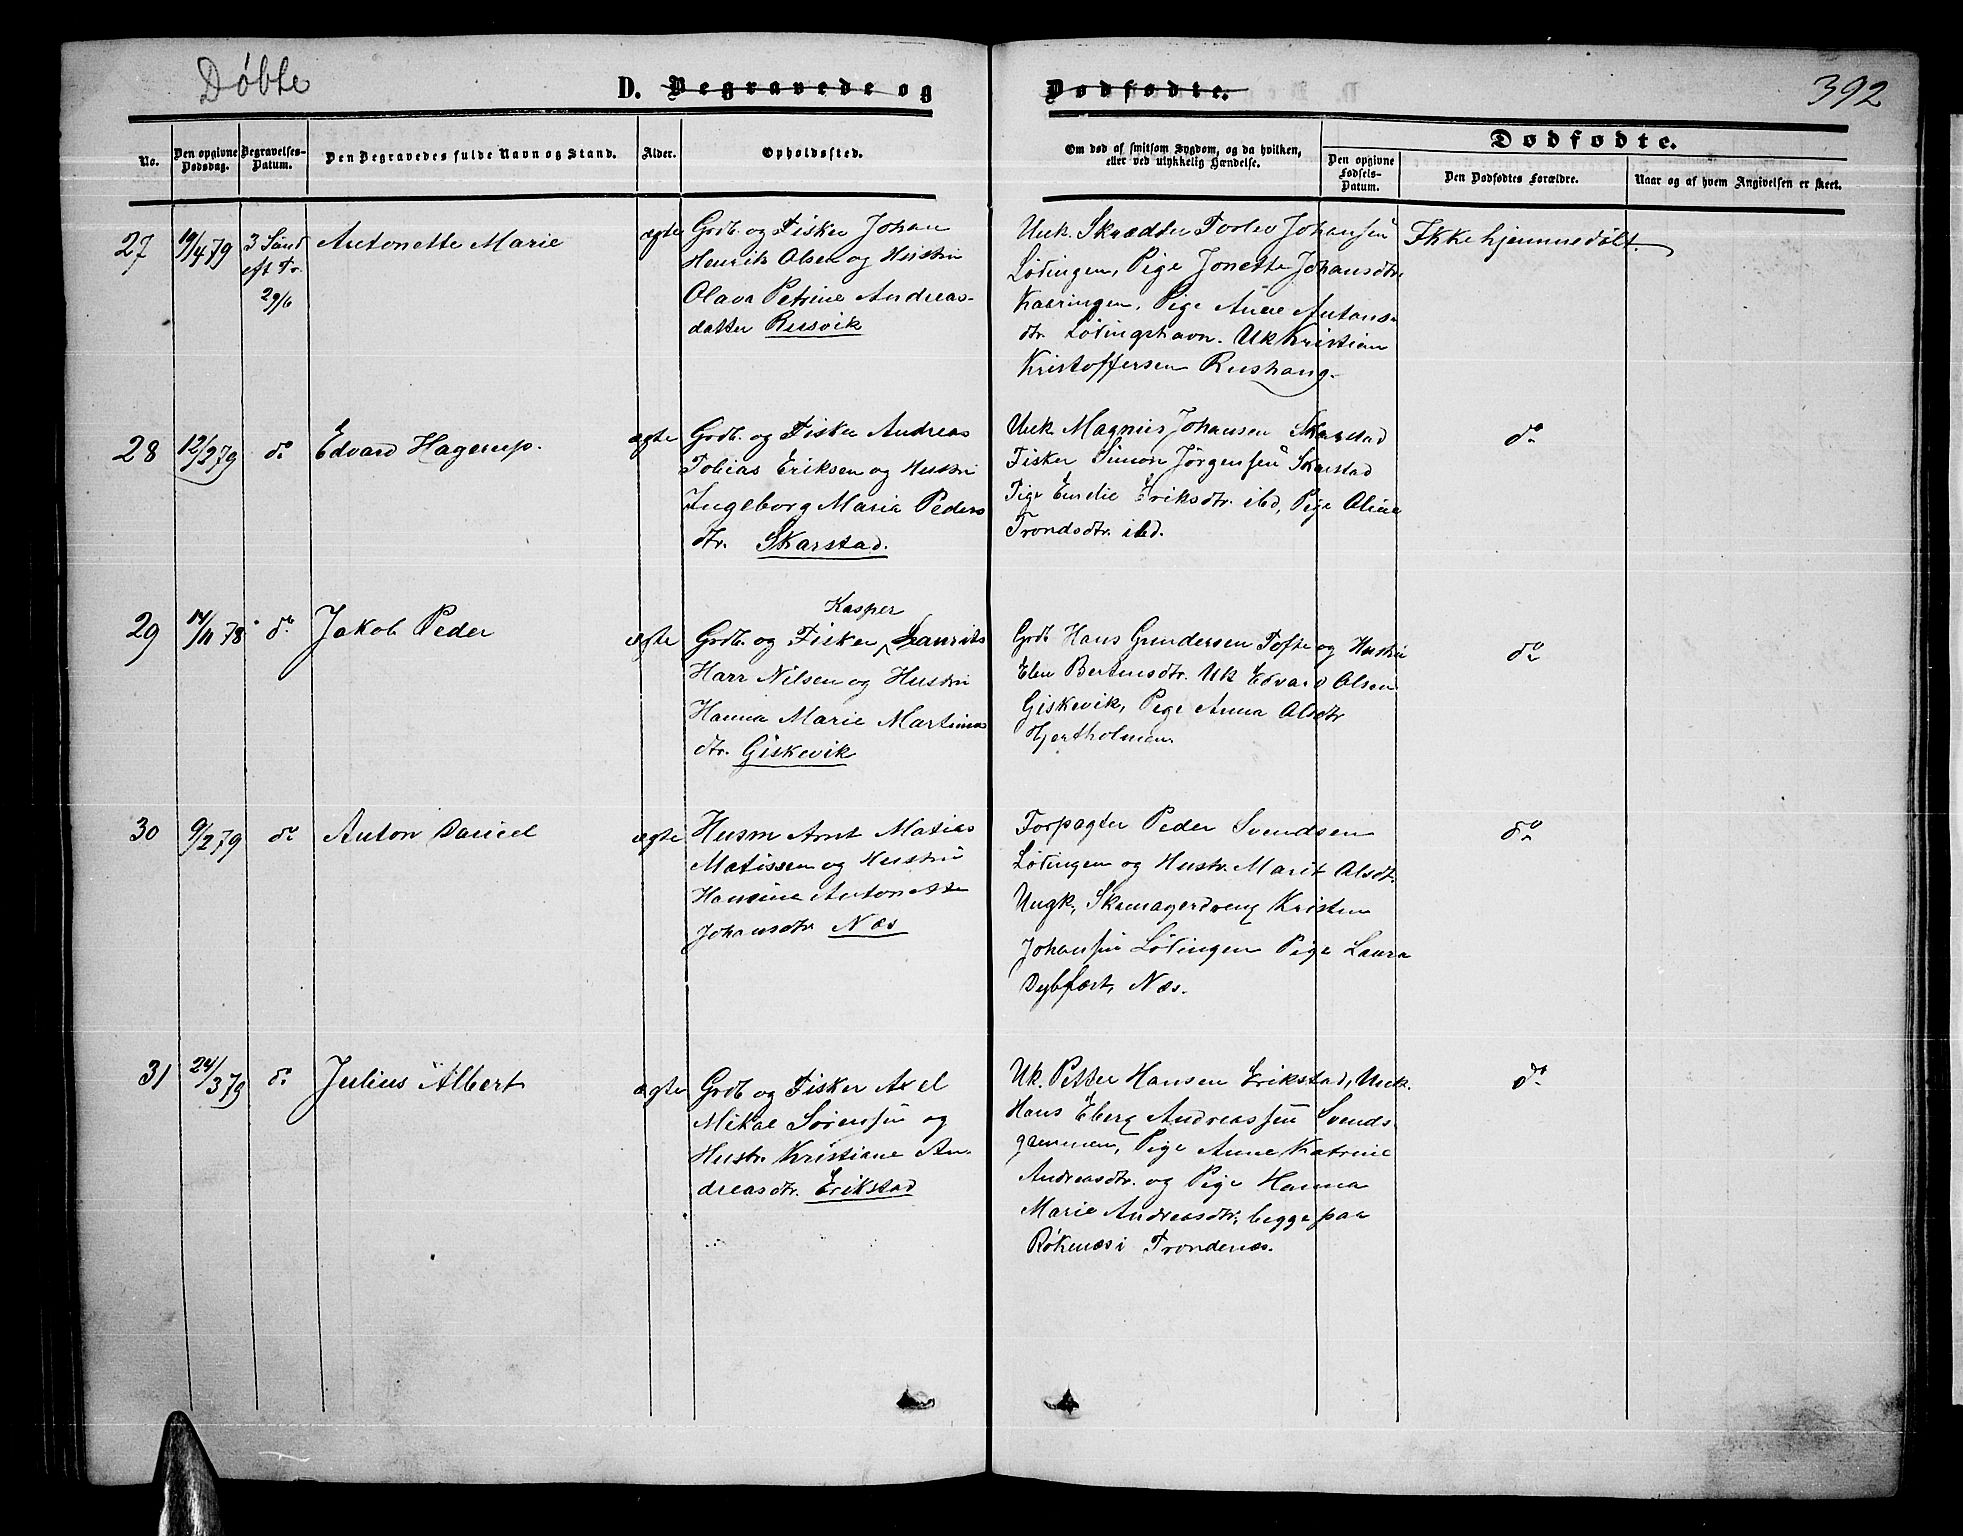 Døbte
D. Begravede og Dødfødte.
392
No.
Den opgivne Dødsdag.
Begravelses-Datum.
Den Begravedes fulde Navn og Stand.
Alder.
Opholdssted.
Om død af smitsom Sygdom, og da hvilken, eller ved ulykkelig Hændelse.
Dødfødte.
Den opgivne Fødsels-Datum.
Den Dødfødtes Forældre.
Naar og af hvem Angivelsen er skeet.
27
19/4 79
3 Sønd
eft Tr.
29/6
Antonette Marie
ægte
Grdb. og Fisker Johan
Henrik Olsen og Hustru
Olava Petrine Andreas-
datter Rusvik
Unk. Skrædder Torlev Johansen
Lødingen, Pige Jonette Johansdtr
Kaaringen, Pige Anne Antons-
dtr. Lødingshavn. Uk Kristian
Kristoffersen Rushaug.
Ikke hjemmedøbt.
28
12/2 79
do
Edvard Hagerup.
ægte
Grdb. og Fisker Andreas
Tobias Eriksen og Hustru
Ingeborg Maria Peders
dtr. Skarstad.
Unk. Magnus Johansen Skarstad
Fisker Simon Jørgensen Skarstad
Pige Emelie Eriksdtr. ibd, Pige Oline
Trondsdtr. ibd.
do
29
17/11 78
do
Jakob Peder
ægte
Kasper
Grdb. og Fisker Laurits
Harr Nilsen og Hustru
Hanna Marie Martinus
dtr. Giskevik
Grdb. Hans Gundersen Tofte og Hustru
Elen Bertinsdtr. Uk Edvard Olsen
Giskevik, Pige Anna Olsdtr
Hjertholmen.
do
30
9/2 79
do
Anton Daniel
ægte
Husm Arnt Matias
Matissen og Hustru
Hansine Antonette
Johansdtr Næs
Forpagter Peder Svendsen
Lødingen og Hustr. Marit Olsdt.
Ungk. Skomagerdreng Kristen
Johansen Lødingen Pige Laura
Dybfæst, Næs.
do
31
24/3 79
do
Julius Albert
ægte
Grdb og Fisker Axel
Mikal Sørensen og
Hustr. Kristiane An-
dreasdtr. Erikstad
Uk. Petter Hansen Erikstad, Unk.
Hans Eberg Andreassen Svends-
gammen, Pige Anne Katrine
Andreasdtr. og Pige Hanna
Marie Andreasdtr, begge paa
Røkenes i Trondenæs.
do